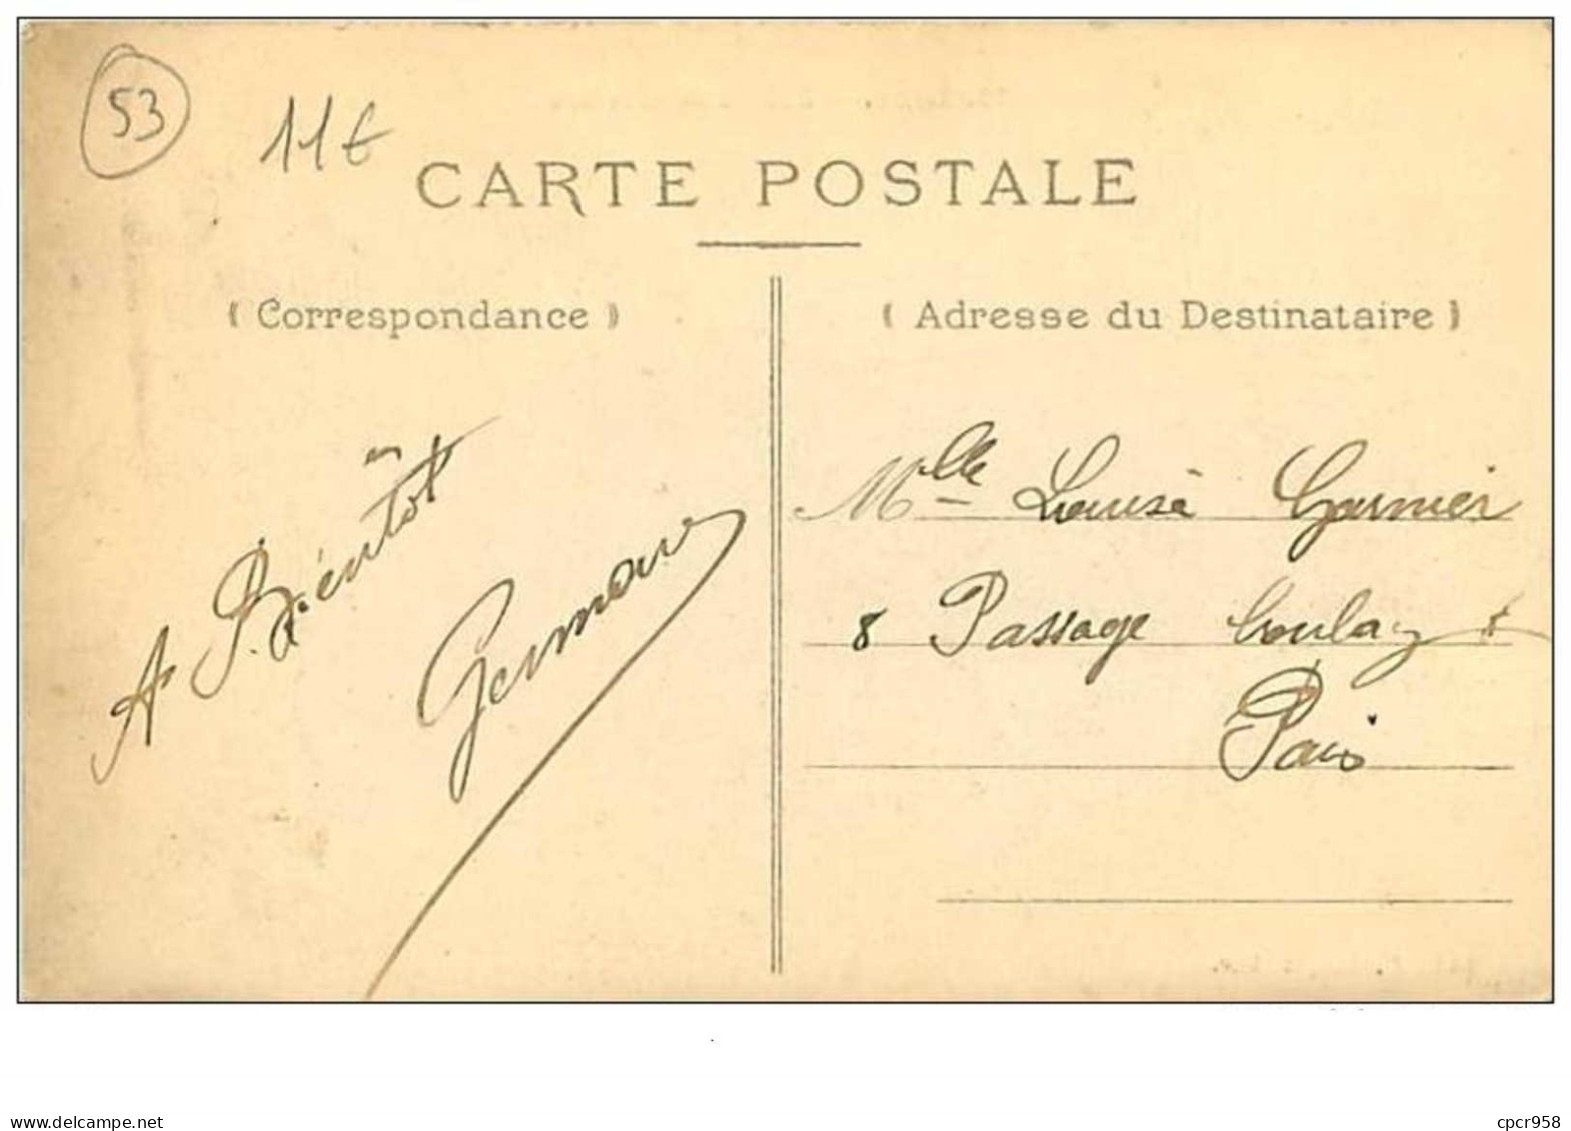 53
11€
CARTE POSTALE
( Correspondance )
( Adresse du Destinataire )
A Bientôt
Mlle Louise Garnier
8 Passage Boulay
Paris
www.delcampe.net
cpcr958